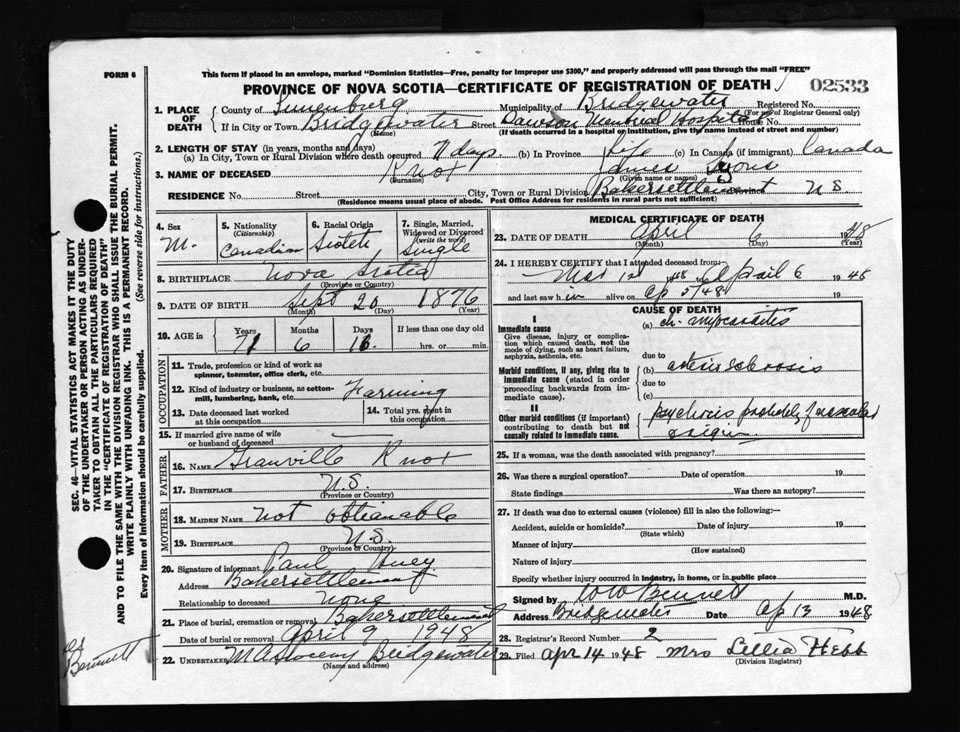 FORM 6
This form if placed in an envelope, marked "Dominion Statistics—Free, penalty for improper use $300," and properly addressed will pass through the mail "FREE"
PROVINCE OF NOVA SCOTIA—CERTIFICATE OF REGISTRATION OF DEATH
02533
1. PLACE OF DEATH
County of Lunenburg Municipality of Bridgewater Registered No.
(For use of Registrar General only)
If in City or Town Bridgewater Street Dawson Memorial Hospital House No.
(Name) (If death occurred in a hospital or institution, give the name instead of street and number)
2. LENGTH OF STAY (in years, months and days)
(a) In City, Town or Rural Division where death occurred 7 days. (b) In Province Life (c) In Canada (if immigrant) Canada
3. NAME OF DECEASED Knot James
(Surname) (Given name or names)
RESIDENCE No. Street City, Town or Rural Division Bakersettlement Province N S
(Residence means usual place of abode. Post Office Address for residents in rural parts not sufficient)
4. Sex M.
5. Nationality (Citizenship) Canadian
6. Racial Origin Scotch
7. Single, Married, Widowed or Divorced (write the word) Single
8. BIRTHPLACE Nova Scotia
(Province or Country)
9. DATE OF BIRTH Sept 20 1876
(Month) (Day) (Year)
10. AGE in Years Months Days If less than one day old
71 6 16 hrs. or min.
OCCUPATION
11. Trade, profession or kind of work as spinner, teamster, office clerk, etc.
12. Kind of industry or business, as cotton-mill, lumbering, bank, etc. Farming
13. Date deceased last worked at this occupation
14. Total yrs. spent in this occupation
15. If married give name of wife or husband of deceased
FATHER
16. NAME Granville Knox
17. BIRTHPLACE N.S.
(Province or Country)
MOTHER
18. MAIDEN NAME Not obtianable
19. BIRTHPLACE N.S.
(Province or Country)
20. Signature of informant Paul Huey
Address Bakersettlement
Relationship to deceased None
21. Place of burial, cremation or removal Bakersettlement
Date of burial or removal April 9 1948
22. UNDERTAKER Bridgewater
(Name and address)
MEDICAL CERTIFICATE OF DEATH
23. DATE OF DEATH April 6 1948
(Month) (Day) (Year)
24. I HEREBY CERTIFY that I attended deceased from:
Mar 12 48 to April 6 1948
and last saw him alive on Ap 5/48 19
CAUSE OF DEATH
I
Immediate cause
Give disease, injury or complication which caused death, not the mode of dying, such as heart failure, asphyxia, asthenia, etc.
(a) ch. myocarditis
due to
Morbid conditions, if any, giving rise to immediate cause (stated in order proceeding backwards from immediate cause).
(b) arterio sclerosis
due to
(c)
II
Other morbid conditions (if important) contributing to death but not causally related to immediate cause.
psychosis probably of vascular origin
25. If a woman, was the death associated with pregnancy?
26. Was there a surgical operation? Date of operation 19
State findings Was there an autopsy?
27. If death was due to external causes (violence) fill in also the following:—
Accident, suicide or homicide? Date of injury 19
(State which)
Manner of injury
(How sustained)
Nature of injury
Specify whether injury occurred in industry, in home, or in public place
Signed by W Bennett M.D.
Address Bridgewater Date Ap 13 1948
28. Registrar's Record Number 2
29. Filed Apr 14 1948 Mrs Lellia Hebb
(Division Registrar)
SEC. 46—VITAL STATISTICS ACT MAKES IT THE DUTY
OF THE UNDERTAKER OR PERSON ACTING AS UNDER-
TAKER TO OBTAIN ALL THE PARTICULARS REQUIRED
IN THE "CERTIFICATE OF REGISTRATION OF DEATH"
AND TO FILE THE SAME WITH THE DIVISION REGISTRAR WHO SHALL ISSUE THE BURIAL PERMIT.
WRITE PLAINLY WITH UNFADING INK. THIS IS A PERMANENT RECORD.
Every item of information should be carefully supplied. (See reverse side for instructions.)
Bennett